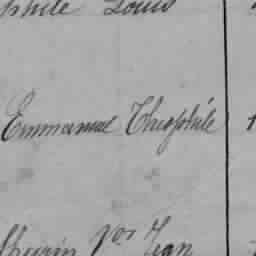 phile Louis
Emmanuel Théophile 1
thurin por Jean